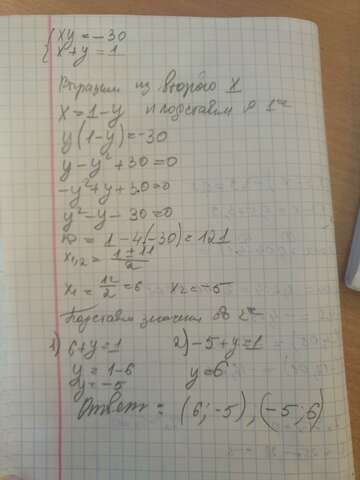 xy = -30
x+y = 1
Выразим из второго x
x = 1-y и подставим в 1ое
y(1-y) = -30
y-y²+30=0
-y²+y+30=0
y²-y-30=0
D = 1-4(-30)=121
x₁,₂ = 1±11/2
x₁ = 12/2 = 6 x₂ = -5
Подставим значения во 2ое
1) 6+y=1 2) -5+y=1
y = 1-6 y=6
y = -5
Ответ: (6;-5), (-5;6)